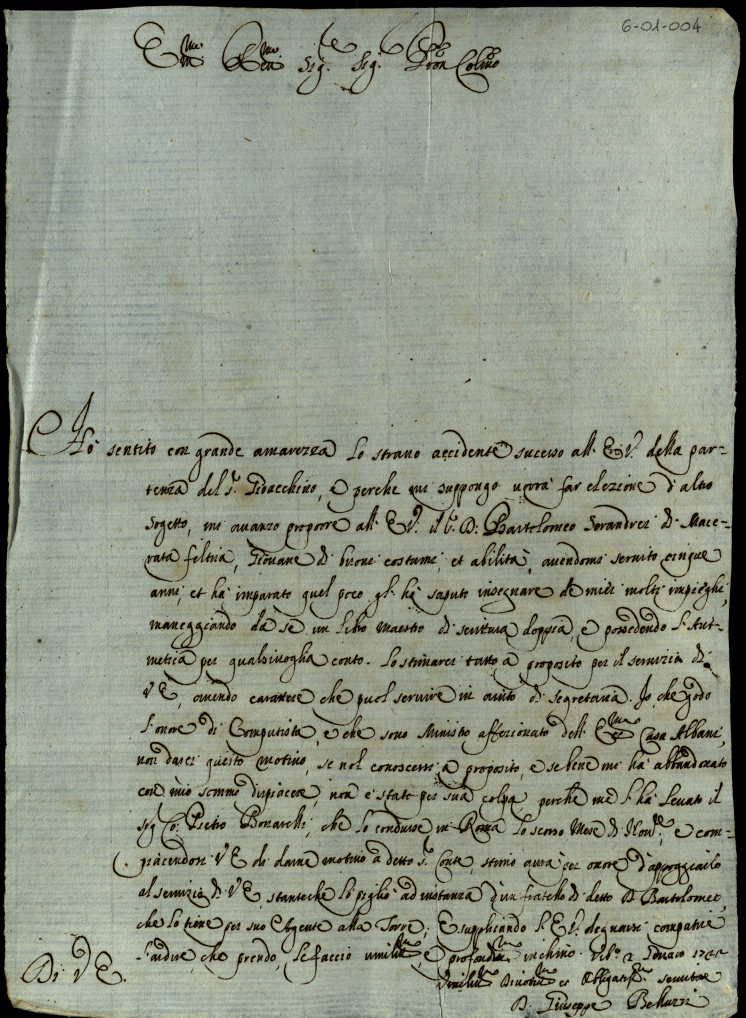 6-01-004
Em.mo Rev.mo Sig.re Sig.re Pron Col.mo
Hò sentito con grande amarezza lo strano accidente sucesso all' Em. V.ra della par=
tenza del S.r Gioacchino, e perche mi suppongo vorrà far elezione d'altro
Sogetto, mi avanzo proporre all' E.V. il S.r D. Bartolomeo Gorandrei di Mace=
rata feltria, Giovane di buoni costumi, et abilità, avendomi servito cinque
anni, et hà imparato quel poco gl' hà saputo insegnare de miei molti impieghi,
maneggiando da sè un libro maestro di scrittura doppia, e possedendo l'Arit=
metica per qualsivoglia conto. Lo stimarei tutto a proposito per il servizio di
V E, avendo carattere che puol servire in aiuto di segretaria. Io che godo
l'onore di Computista, e che sono Ministro affezionato dell' Ecc.ma Casa Albani,
non darei questo motivo, se nol conoscessi a proposito, e se bene mi hà abbandonato
con mio sommo dispiacere, non è stato per sua colpa perche me l'hà levato il
Sig.r Co: Pietro Bonarelli, che lo condusse in Roma lo scorso Mese di Nov.re, e com=
piacendosi V E de darne motivo a detto S.r Conte, stimo avrà per onore d'appoggiarlo
al servizio di V E, stanteche lo pigliò ad instanza d'un fratello di detto D. Bartolomeo,
che lo tiene per suo Agente alla Torre; E supplicando l'E.V. degnarsi compatire
l'ardire che prendo, le faccio umiliss.mo e profondiss.mo inchino. Urb.o 2 Genaro
Di V E.
Umiliss.mo Devotiss.mo et Obligatiss.mo servitore
D. Giuseppe Belluzzi